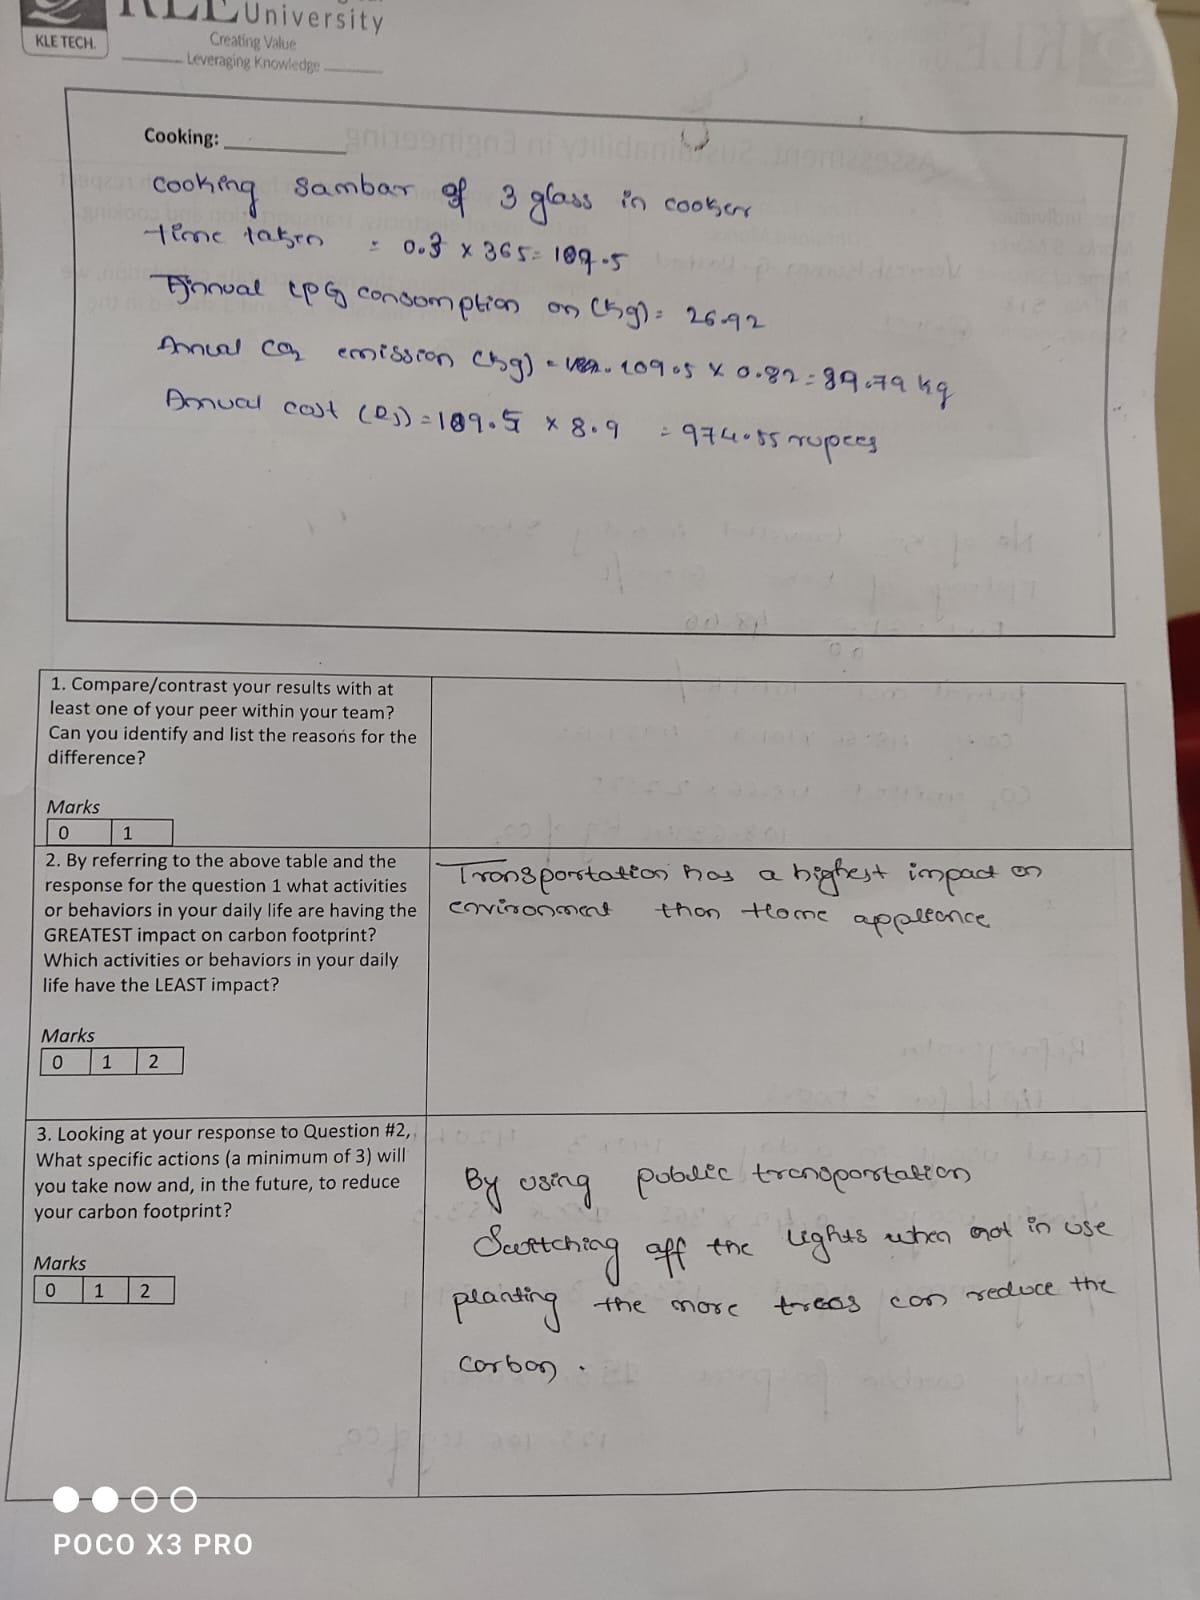 University
KLE TECH.
Creating Value
Leveraging Knowledge
Cooking:
cooking sambar of 3 glass in cooker
time taken = 0.3 x 365 = 109.5
Annual LPG consomption on (kg) = 26.92
Annual CO2 emission (kg) = 109.5 x 0.82 = 89.79 kg
Annual cost (Rs) = 109.5 x 8.9 = 974.55 rupees
1. Compare/contrast your results with at
least one of your peer within your team?
Can you identify and list the reasons for the
difference?
Marks
0 1
2. By referring to the above table and the
response for the question 1 what activities
or behaviors in your daily life are having the
GREATEST impact on carbon footprint?
Which activities or behaviors in your daily
life have the LEAST impact?
Marks
0 1 2
Transportation has a highest impact on
environment than Home appliance
3. Looking at your response to Question #2,
What specific actions (a minimum of 3) will
you take now and, in the future, to reduce
your carbon footprint?
Marks
0 1 2
By using public transportation
Switching off the lights when not in use
planting the more trees can reduce the
carbon.
POCO X3 PRO